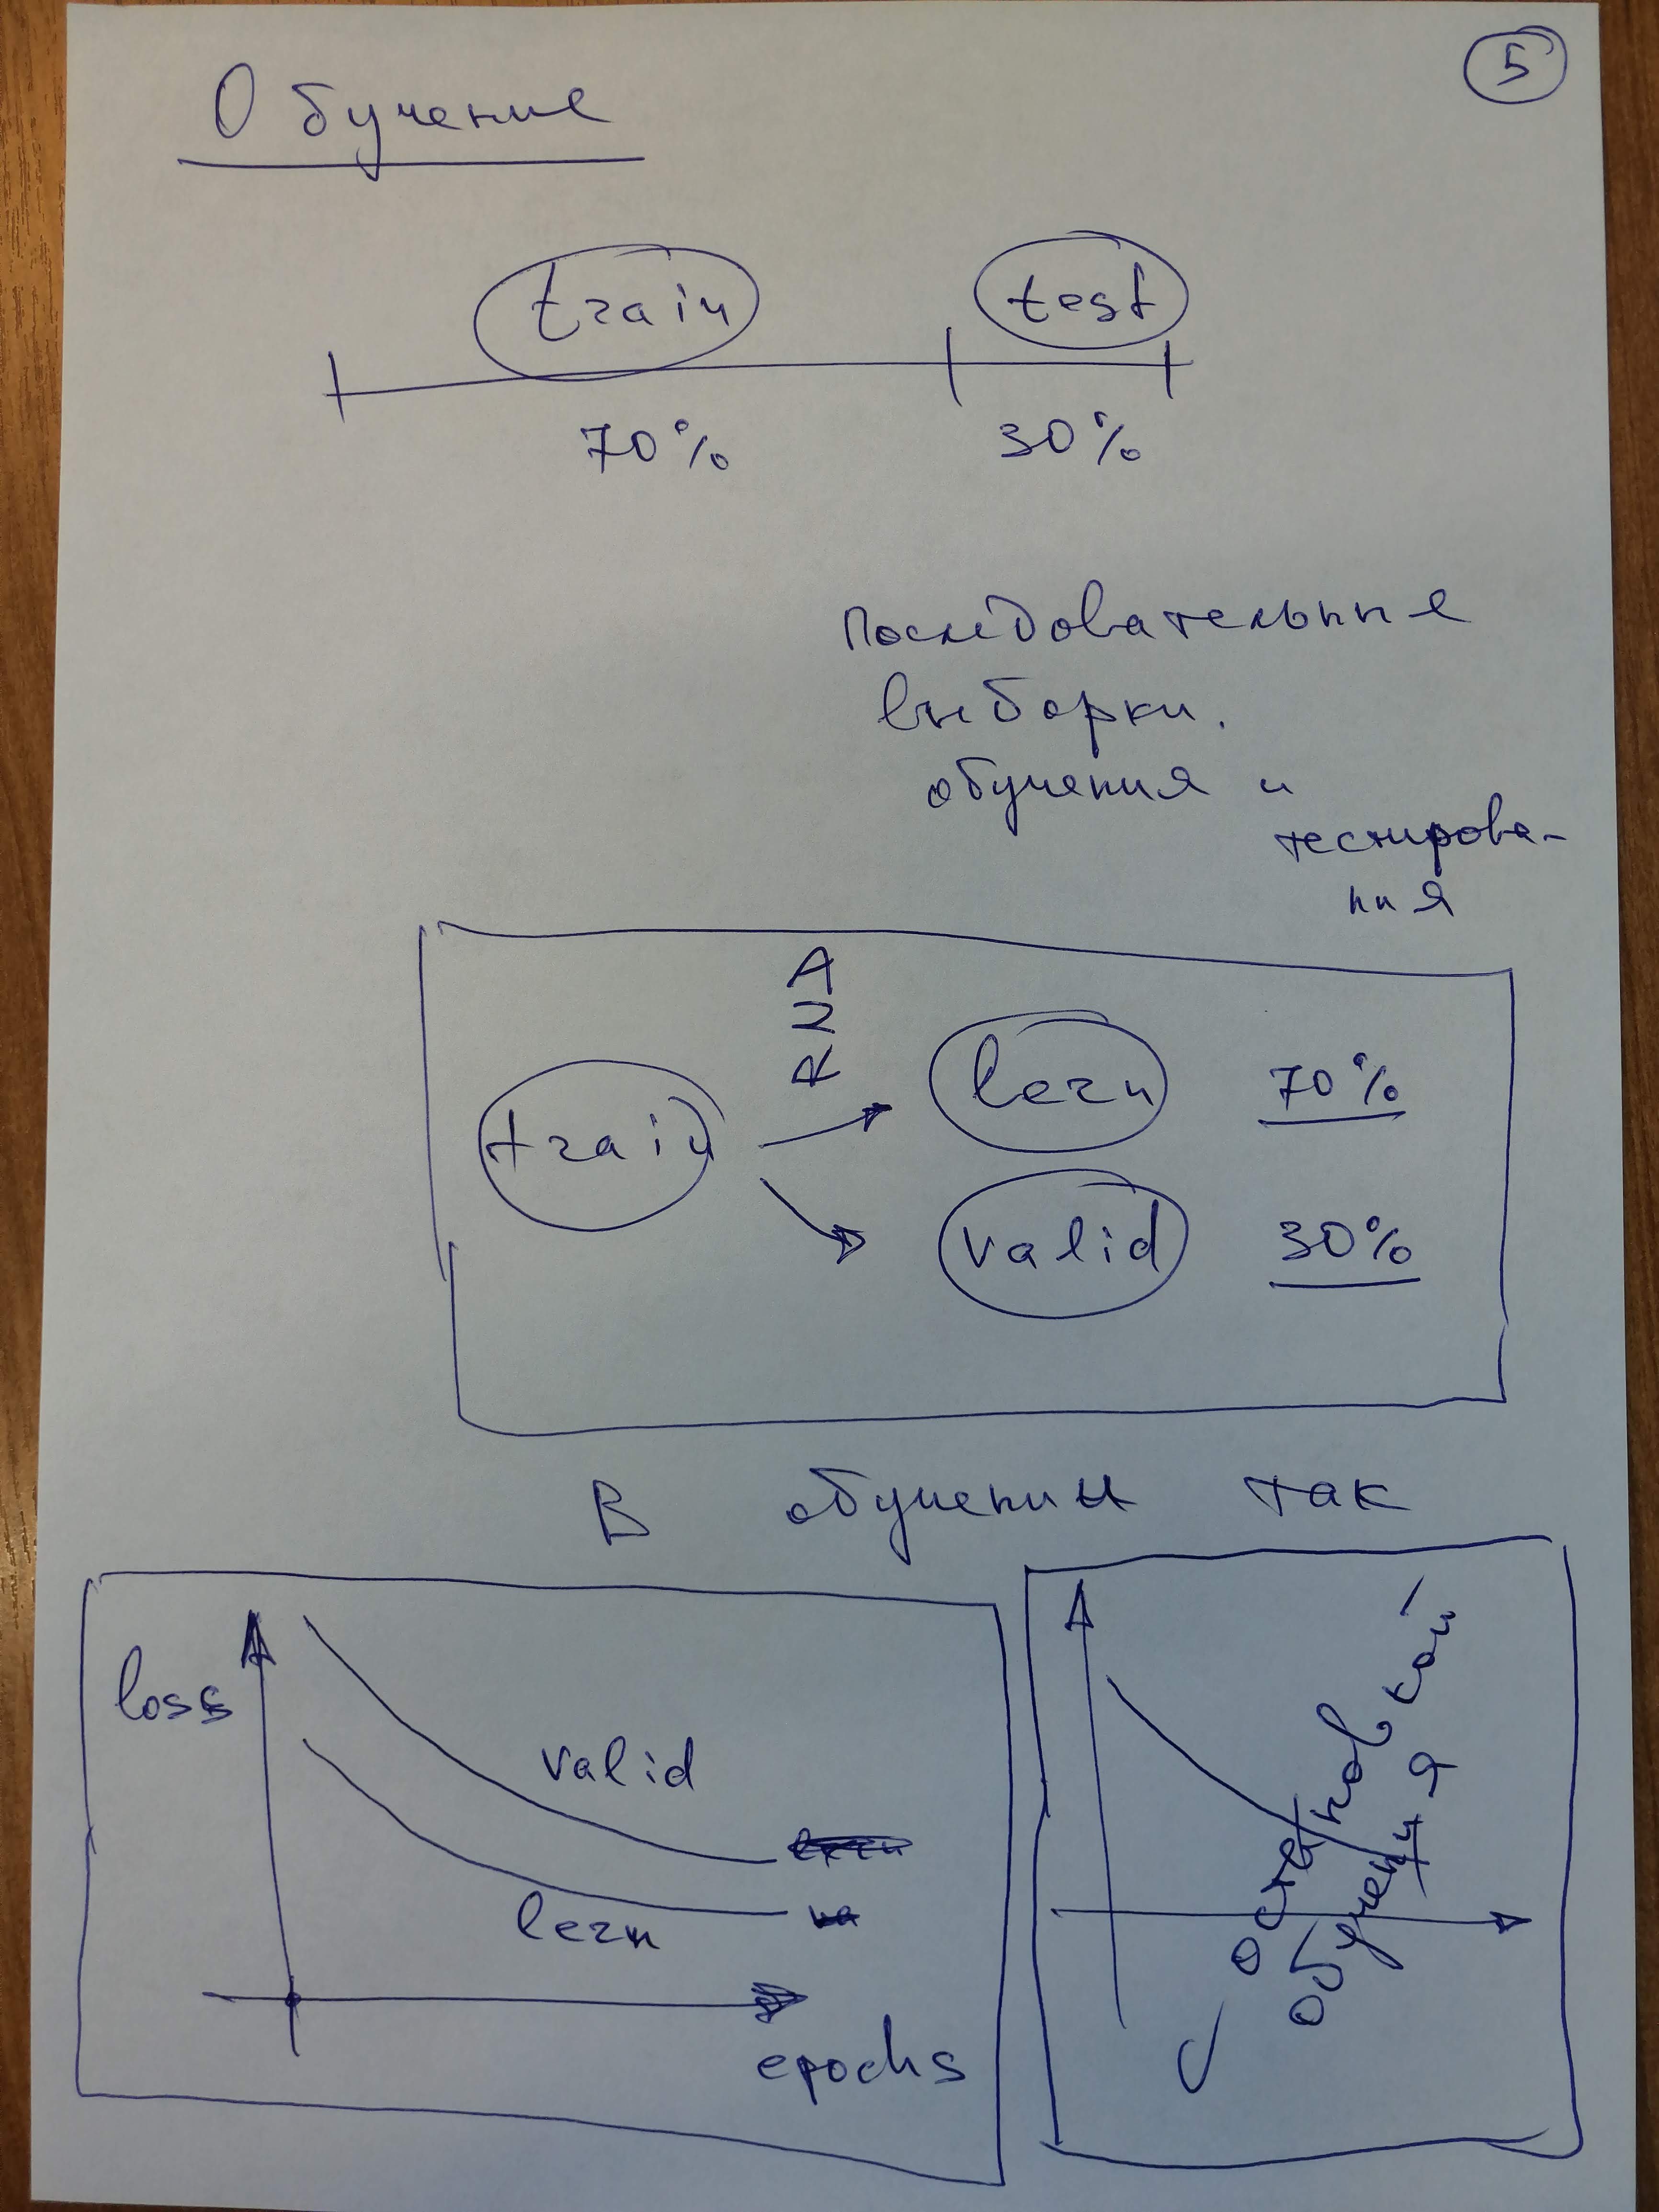 5
Обучение
train test
70% 30%
Последовательные
выборки.
обучения и
тестирова-
ния
RNA
train
lern 70%
valid 30%
В обучении так
loss
valid
lern
epochs
С остановкой
обучения